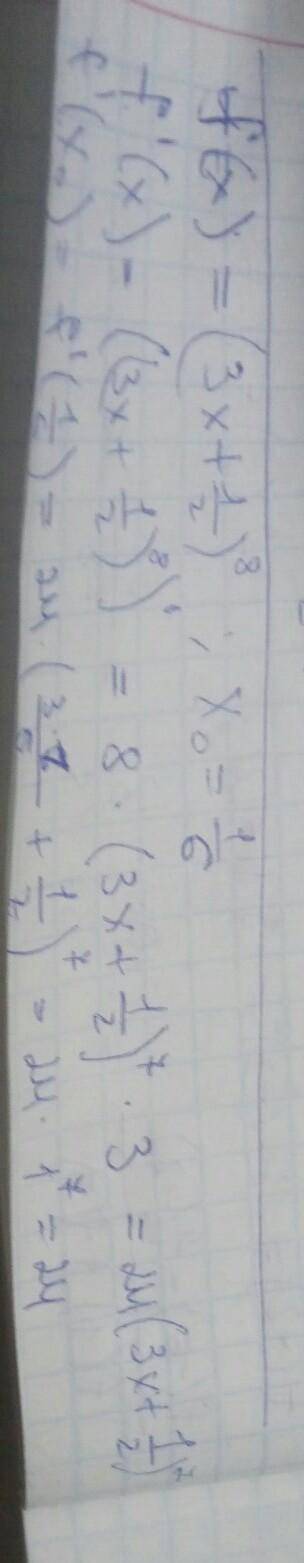 f(x) = (3x + 1/2)^8 ; x₀ = 1/6
f'(x) = ((3x + 1/2)^8)' = 8 · (3x + 1/2)^7 · 3 = 24(3x + 1/2)^7
f'(x₀) = f'(1/2) = 24 · (3·1/6 + 1/2)^7 = 24 · 1^7 = 24